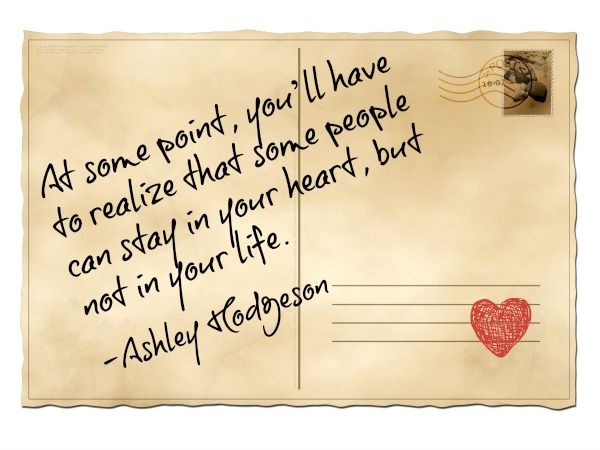 At some point, you'll have
to realize that some people
can stay in your heart, but
not in your life.
-Ashley Hodgeson
POSTA